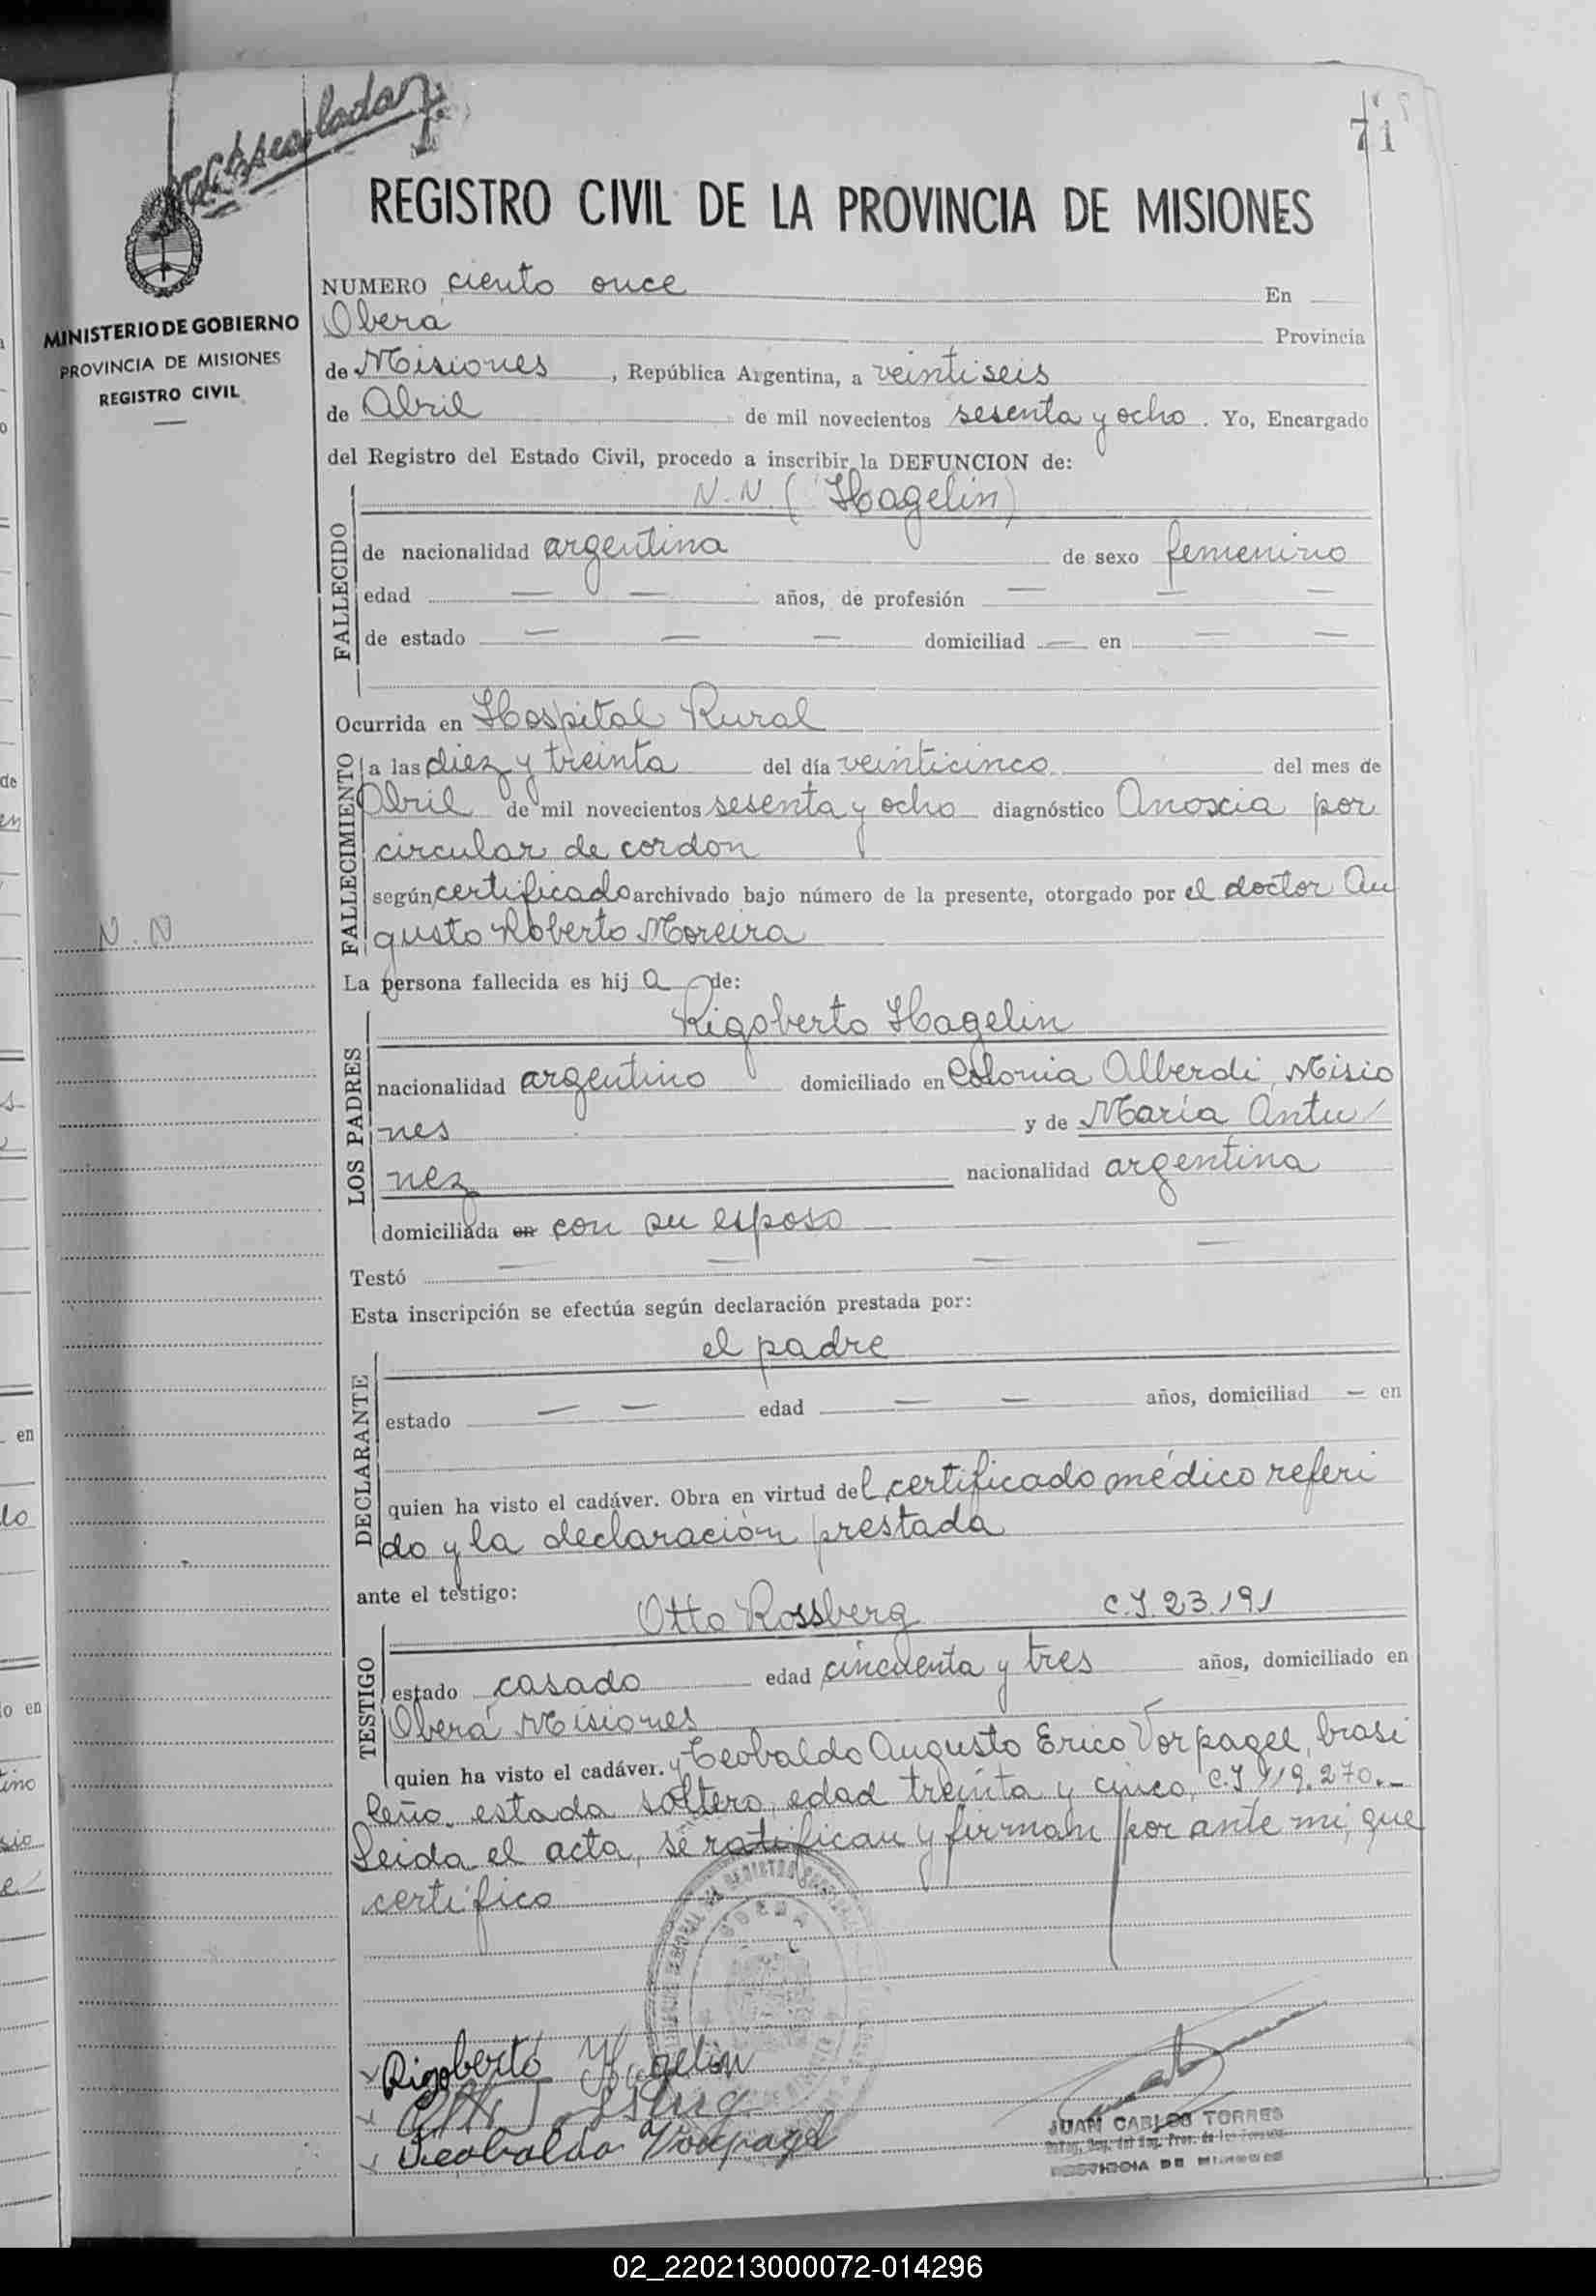 71
REGISTRO CIVIL DE LA PROVINCIA DE MISIONES
MINISTERIO DE GOBIERNO
PROVINCIA DE MISIONES
REGISTRO CIVIL
NUMERO ciento once En
Oberá Provincia
de Misiones, República Argentina, a veintiseis
de Abril de mil novecientos sesenta y ocho. Yo, Encargado
del Registro del Estado Civil, procedo a inscribir la DEFUNCION de:
N.N. (Hagelin)
FALLECIDO
de nacionalidad argentina de sexo femenino
edad — — años, de profesión — — —
de estado — — — domiciliad — en — —
Ocurrida en Hospital Rural
FALLECIMIENTO
a las diez y treinta del día veinticinco del mes de
Abril de mil novecientos sesenta y ocho diagnóstico Anoxia por
circular de cordon
según certificado archivado bajo número de la presente, otorgado por el doctor Au
gusto Roberto Moreira
N.N
La persona fallecida es hij a de:
Rigoberto Hagelin
LOS PADRES
nacionalidad argentino domiciliado en Colonia Alberdi, Misio
nes y de María Antu
nez nacionalidad argentina
domiciliada en con su esposo
Testó — — — —
Esta inscripción se efectúa según declaración prestada por:
el padre
DECLARANTE
estado — — edad — — años, domiciliad — en
quien ha visto el cadáver. Obra en virtud del certificado médico referi
do y la declaración prestada
ante el testigo:
Otto Rossberg C.I. 23.191
TESTIGO
estado casado edad cincuenta y tres años, domiciliado en
Oberá Misiones
quien ha visto el cadáver. y Teobaldo Augusto Erico Vorpagel, brasi
leño, estada soltero, edad treinta y cinco, C.I 119.270.-
Leida el acta, se ratifican y firman por ante mi, que
certifico
Rigoberto Hagelin
Teobaldo A Vorpagel
JUAN CARLOS TORRES
PROVINCIA DE MISIONES
02_220213000072-014296